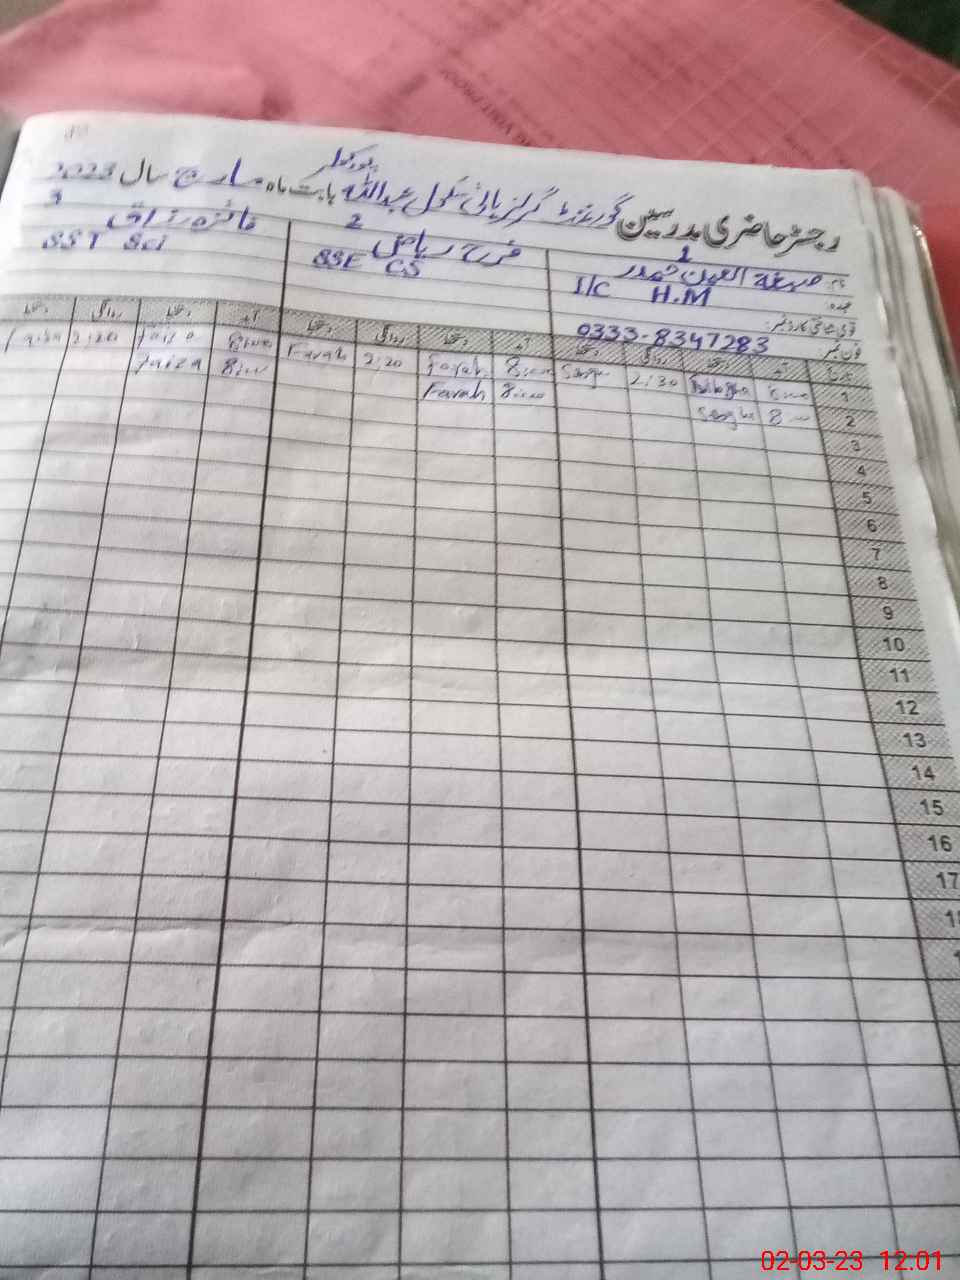 پورکولر
رجسٹر حاضری مدرسین گورنمنٹ گرلز ہائی سکول عبداللہ بابت ماہ مارچ سال 2023
1 2 3
نام: صبغۃ العین حیدر فرح ریاض فائزہ رزاق
عہدہ: I/C H.M SSE CS SST Sci
قومی شناختی کارڈ نمبر:
فون نمبر: 0333-8347283
تاریخ آمد دستخط روانگی دستخط آمد دستخط روانگی دستخط آمد دستخط روانگی دستخط
1 8:00 2:30 8:00 Farah 2:20 Farah 8:00 Faiza 2:20 Faiza
2 8:00 8:00 Farah 8:00 Faiza
3
4
5
6
7
8
9
10
11
12
13
14
15
16
17
02-03-23 12.01